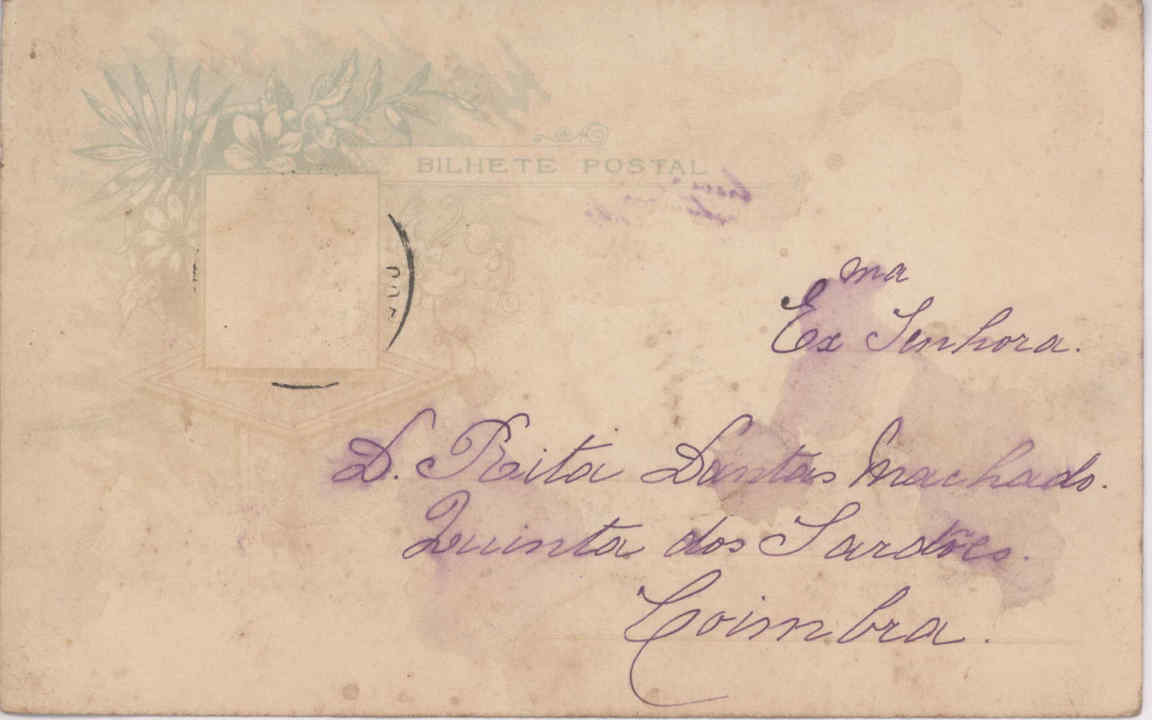 BILHETE POSTAL
Ex ma Senhora.
D. Rita Dantas Machado.
Quinta dos Sardões.
Coimbra.